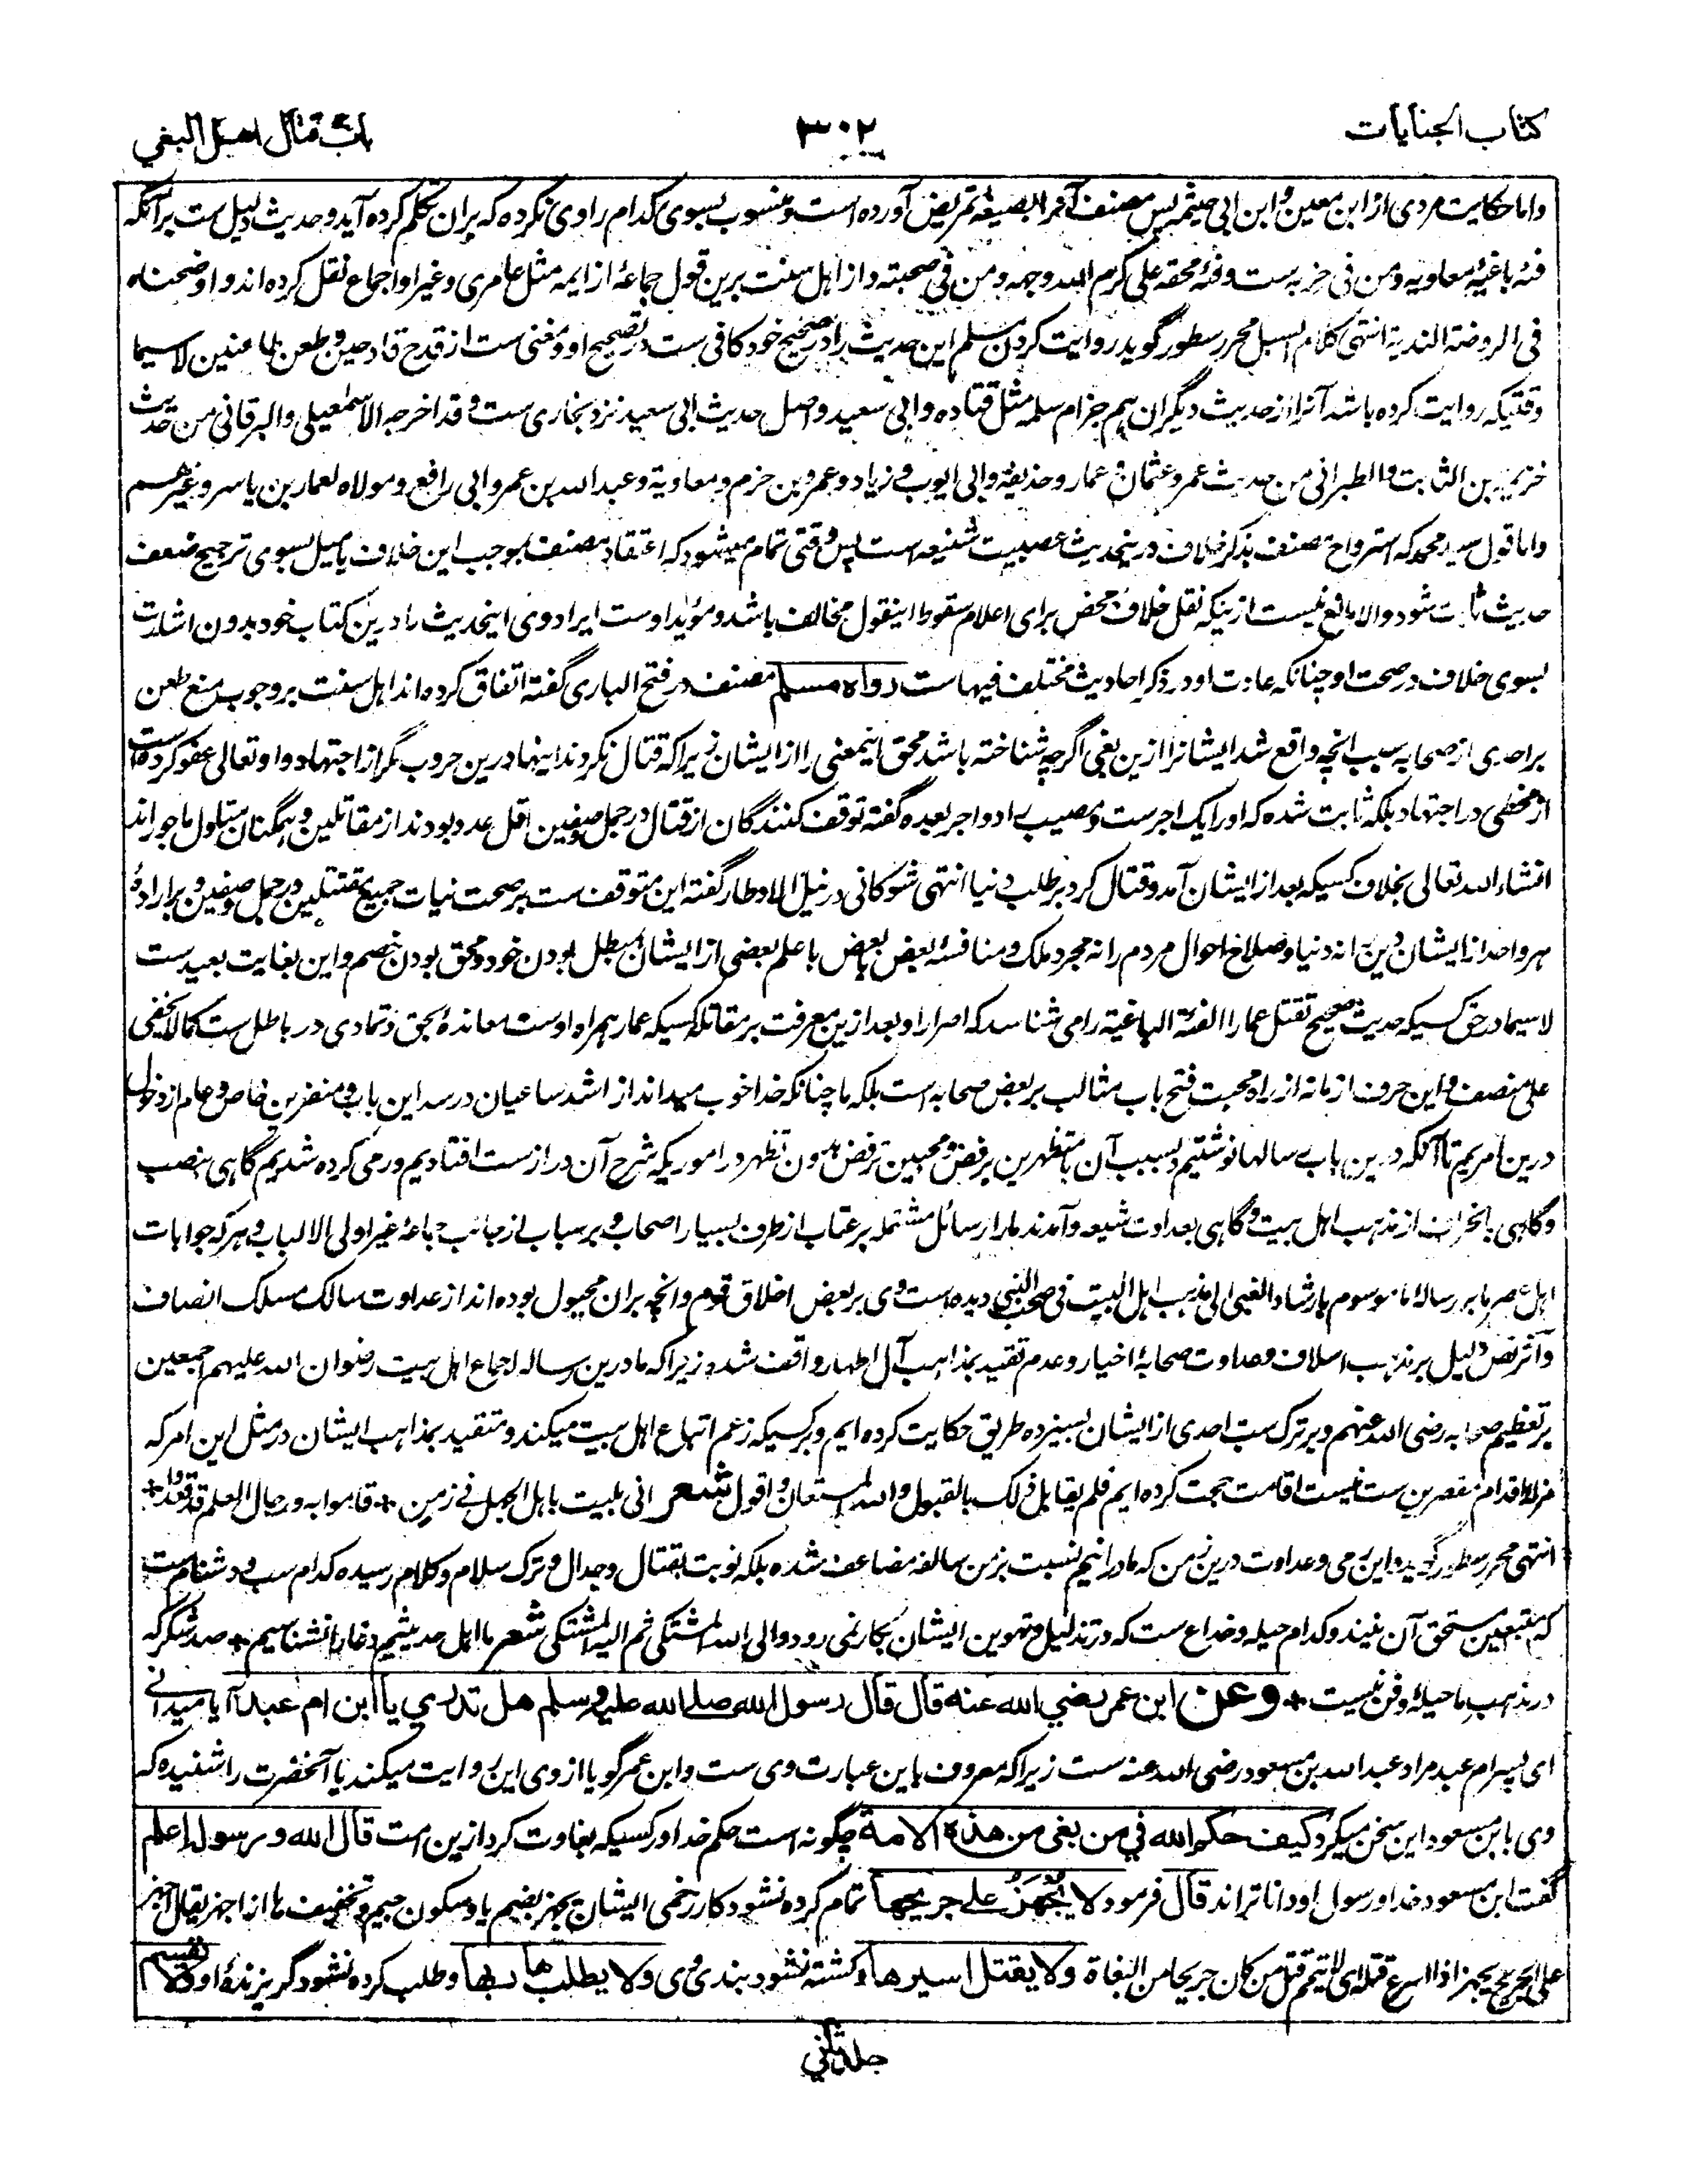 کتاب الجنایات
۳۰۲
باب قتال اهل البغي
واما حکایت مردی از ابن معین و ابن ابی خیثمه پس مصنف آنرا بصیغهٔ تمریض آورده است و منسوب بسوی کدام راوی نکرده که بران تکلم کرده آید و حدیث دلیل ست بر آنکه
فئهٔ باغیه معاویه ومن فی حزبه ست وفئهٔ محقه علی کرم الله وجهه ومن فی صحبته و از اهل سنت برین قول جماعهٔ از ایمه مثل عامری وغیر او اجماع نقل کرده اند و اوضحناه
فی الروضة الندیة انتهی کلام السبل محرر سطور گوید روایت کردن مسلم این حدیث را در صحیح خود کافی ست در تصحیح او و مغنی ست از قدح قادحین و طعن طاعنین لاسیما
وقتیکه روایت کرده باشد آنرا از حدیث دیگران هم جز ام سلمه مثل قتاده و ابی سعید و اصل حدیث ابی سعید نزد بخاری ست و قد اخرجه الاسمعیلی والبرقانی من حدیث
خزیمه بن الثابت والطبرانی من حدیث عمر وعثمان وعمار وحذیفة وابی ایوب وزیاد وعمرو بن حزم ومعاویة وعبد الله بن عمرو وابی رافع ومولاه لعمار بن یاسر وغیرهم
واما قول سید محمد که استرواح مصنف بذکر خلاف درینحدیث عصبیت شنیعه است پس وقتی تمام میشود که اعتقاد مصنف بموجب این خلاف یا میل بسوی ترجیح ضعف
حدیث ثابت شود والا مانع نیست ازینکه نقل خلاف محض برای اعلام سقوط اینقول مخالف باشد و مؤید اوست ایراد وی اینحدیث را درین کتاب خود بدون اشارت
بسوی خلاف در صحت او چنانکه عادت او در ذکر احادیث مختلف فیهاست رواه مسلم مصنف در فتح الباری گفته اتفاق کرده اند اهل سنت بر وجوب منع طعن
بر احدی از صحابه بسبب انچه واقع شد ایشانرا ازین بغی اگرچه شناخته باشد محق اینمعنی را از ایشان زیراکه قتال نکردند اینها درین حروب مگر از اجتهاد و او تعالی عفو کرده است
از مخطی در اجتهاد بلکه ثابت شده که او را یک اجر ست و مصیب را دو اجر بعده گفته توقف کنندگان از قتال در جمل و صفین اقل عدد بودند از مقاتلین و همگنان متاول ماجور اند
انشاء الله تعالی بخلاف کسیکه بعد از ایشان آمد و قتال کرد بر طلب دنیا انتهی شوکانی در نیل الاوطار گفته این متوقف ست بر صحت نیات جمیع مقتتلین در جمل و صفین و بر ارادهٔ
هر واحد از ایشان دین را نه دنیا و صلاح احوال مردم را نه مجرد ملک و منافسهٔ بعض بعض با علم بعضی از ایشان بمبطل بودن خود و محق بودن خصم و این بغایت بعید ست
لاسیما در حق کسیکه حدیث صحیح تقتل عمارا الفئة الباغیة را می شناسد که اصرار او بعد ازین معرفت بر مقاتله کسیکه عمار همراه اوست معاندهٔ بحق و تمادی در باطل ست کما لا یخفی
علی منصف و این حرف از ما نه از راه محبت فتح باب مثالب بر بعض صحابه است بلکه ما چنانکه خدا خوب میداند از اشد ساعیان در سد این باب و منفرین خاص و عام از دخول
درین امریم تا آنکه درین باب سالها نوشتیم و بسبب آن با متظهرین برفض و محبین ترفض بدون تظهر در اموریکه شرح آن دراز ست افتادیم و رمی کرده شدیم گاهی بنصب
و گاهی بانحراف از مذهب اهل بیت و گاهی بعداوت شیعه و آمدند مارا رسائل مشتمله بر عتاب از طرف بسیار اصحاب و بر سباب از جانب جماعهٔ غیر اولی الالباب و هر که جوابات
اهل عصر ما بر رسالهٔ ما موسوم بارشاد الغبی الی مذهب اهل البیت فی صحب النبی دیده است وی بر بعض اخلاق قوم و انچه بران مجبول بوده اند از عداوت سالک مسلک انصاف
و آثر نص دلیل بر مذهب اسلاف و عداوت صحابهٔ اخیار و عدم تقید بمذاهب آل اطهار واقف شده زیراکه ما درین رساله اجماع اهل بیت رضوان الله علیهم اجمعین
بر تعظیم صحابه رضی الله عنهم و بر ترک سب احدی از ایشان بسیزده طریق حکایت کرده ایم و بر کسیکه زعم اتباع اهل بیت میکند و متقید بمذاهب ایشان در مثل این امر که
مزلة اقدام مقصرین ست نیست اقامت حجت کرده ایم فلم یقابل ذلک بالقبول والله المستعان و اقول شعر انی بلیت باهل الجهل فی زمن + قاموا به و رجال العلم قد قعدوا +
انتهی محرر سطور گوید و این رمی و عداوت درین زمن که ما در انیم نسبت بزمن سالفه مضاعف شده بلکه نوبت بقتال و جدال و ترک سلام و کلام رسیده کدام سب و دشنام ست
که متبعین مستحق آن نیند و کدام حیله و خداع ست که در تذلیل و تهوین ایشان بکار نمی رود و الی الله المشتکی ثم الیه المشتکی شعر ما اهل حدیثیم دغا را نشناسیم + صد شکر که
در مذهب ما حیله و فن نیست + وعن ابن عمر رضي الله عنه قال قال رسول الله صلی الله علیه وسلم هل تدري یا ابن ام عبد آیا میدانی
ای پسر ام عبد مراد عبد الله بن مسعود رضی الله عنه ست زیراکه معروف باین عبارت وی ست و ابن عمر گویا از وی این روایت میکند یا آنحضرت را شنیده که
وی با بن مسعود این سخن میکرد کیف حکم الله في من بغی من هذه الامة چگونه است حکم خدا در کسیکه بغاوت کرد ازین امت قال الله ورسوله اعلم
گفت ابن مسعود خدا و رسول او دانا تراند قال فرمود لا یُجْهَزُ علی جریحها تمام کرده نشود کار زخمی ایشان یجهز بضم یا و سکون جیم و تخفیف ها از اجهز یقال اجهز
علی الجریح یجهز اذا اسرع قتله ای لا یتمم قتل من کان جریحا من البغاة ولا یقتل اسیرها و کشته نشود بندی وی ولا یطلب هاربها و طلب کرده نشود گریزندهٔ او ولا یقسم
جلد ثاني